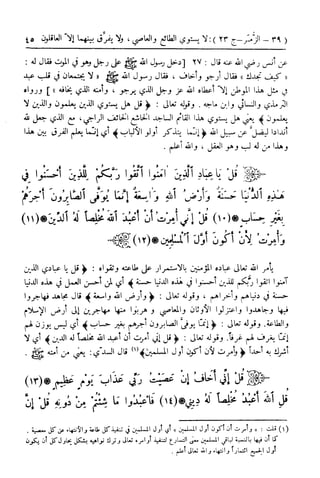 (٣٩ - الزُّمَر - ج ٢٣) : لا يستوي الطائع والعاصي، ولا يفرّق بينهما إلا العاقلون ٤٥
عن أنس رضي الله عنه قال: ٢٧ [دخل رسول الله ﷺ على رجل وهو في الموت فقال له:
«كيف تجدك» فقال أرجو وأخاف، فقال رسول الله ﷺ «لا يجتمعان في قلب عبد
في مثل هذا الموطن إلا أعطاه الله عز وجل الذي يرجو، وأمنه الذي يخافه»] ورواه
الترمذي والنسائي وابن ماجه. وقوله تعالى: ﴿قل هل يستوي الذين يعلمون والذين لا
يعلمون﴾ يعني هل يستوي هذا القائم الساجد الخاشع الخائف الراجي، مع الذي جعل لله
أندادا ليضل عن سبيل الله ﴿إنما يتذكر أولو الألباب﴾ أي إنما يعلم الفرق بين هذا
وهذا من له لب وهو العقل، والله أعلم.
قُلْ يَا عِبَادِ الَّذِينَ آمَنُوا اتَّقُوا رَبَّكُمْ لِلَّذِينَ أَحْسَنُوا فِي
هَـٰذِهِ الدُّنْيَا حَسَنَةٌ وَأَرْضُ اللَّهِ وَاسِعَةٌ إِنَّمَا يُوَفَّى الصَّابِرُونَ أَجْرَهُمْ
بِغَيْرِ حِسَابٍ (١٠) قُلْ إِنِّي أُمِرْتُ أَنْ أَعْبُدَ اللَّهَ مُخْلِصًا لَهُ الدِّينَ (١١)
وَأُمِرْتُ لِأَنْ أَكُونَ أَوَّلَ الْمُسْلِمِينَ (١٢)
يأمر الله تعالى عباده المؤمنين بالاستمرار على طاعته وتقواه: ﴿قل يا عبادي الذين
آمنوا اتقوا ربكم للذين أحسنوا في هذه الدنيا حسنة﴾ أي لمن أحسن العمل في هذه الدنيا
حسنة في دنياهم وأخراهم، وقوله تعالى: ﴿وأرض الله واسعة﴾ قال مجاهد فهاجروا
فيها وجاهدوا واعتزلوا الأوثان والمعاصي و هربوا منها مهاجرين إلى أرض الإسلام
والطاعة. وقوله تعالى: ﴿إنما يوفى الصابرون أجرهم بغير حساب﴾ أي ليس يوزن لهم
إنما يغرف لهم غرفاً. وقوله تعالى: ﴿قل إني أمرت أن أعبد الله مخلصاً له الدين﴾ أي لا
أشرك به أحداً ﴿وأمرت لأن أكون أول المسلمين﴾(١) قال السدي: يعني من أمته ﷺ.
قُلْ إِنِّي أَخَافُ إِنْ عَصَيْتُ رَبِّي عَذَابَ يَوْمٍ عَظِيمٍ (١٣)
قُلِ اللَّهَ أَعْبُدُ مُخْلِصًا لَهُ دِينِي (١٤) فَاعْبُدُوا مَا شِئْتُمْ مِنْ دُونِهِ قُلْ إِنَّ
(١) قلت: «وأمرت أن أكون أول المسلمين» أي أول المسلمين في تنفيذ كل طاعة والانتهاء عن كل معصية.
كما أن فيها بالنسبة لباقي المسلمين معنى التسارع لتنفيذ أوامره تعالى وترك نواهيه بشكل يحاول كل أن يكون
أول الجميع ائتماراً وانتهاء والله تعالى أعلم.